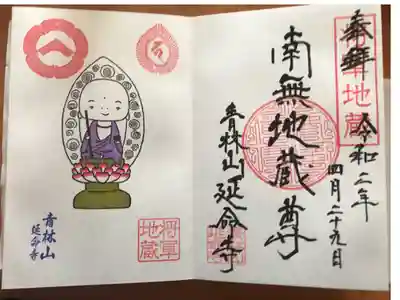 奉拝 令和二年
四月二十九日
将軍地蔵
南無地蔵尊
青林山延命寺
青林山
延命寺
将軍
地蔵